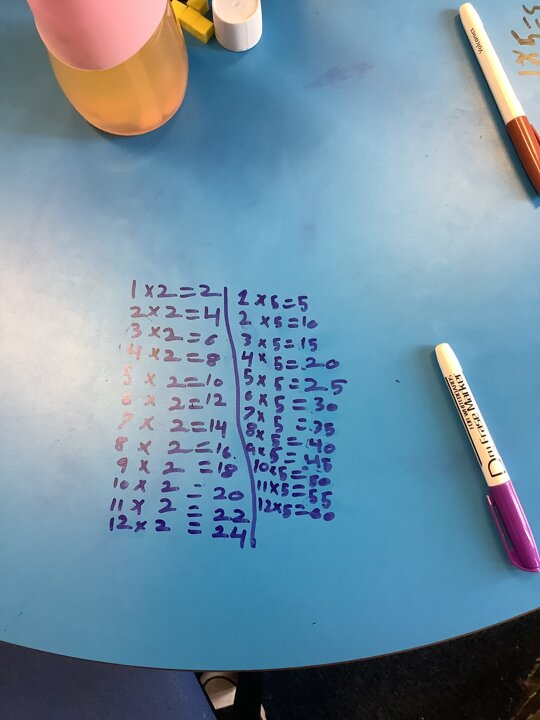 1 x 2 = 2
2 x 2 = 4
3 x 2 = 6
4 x 2 = 8
5 x 2 = 10
6 x 2 = 12
7 x 2 = 14
8 x 2 = 16
9 x 2 = 18
10 x 2 = 20
11 x 2 = 22
12 x 2 = 24
1 x 5 = 5
2 x 5 = 10
3 x 5 = 15
4 x 5 = 20
5 x 5 = 25
6 x 5 = 30
7 x 5 = 35
8 x 5 = 40
9 x 5 = 45
10 x 5 = 50
11 x 5 = 55
12 x 5 = 60
1 x 5 = 5
Dri Erase Marker